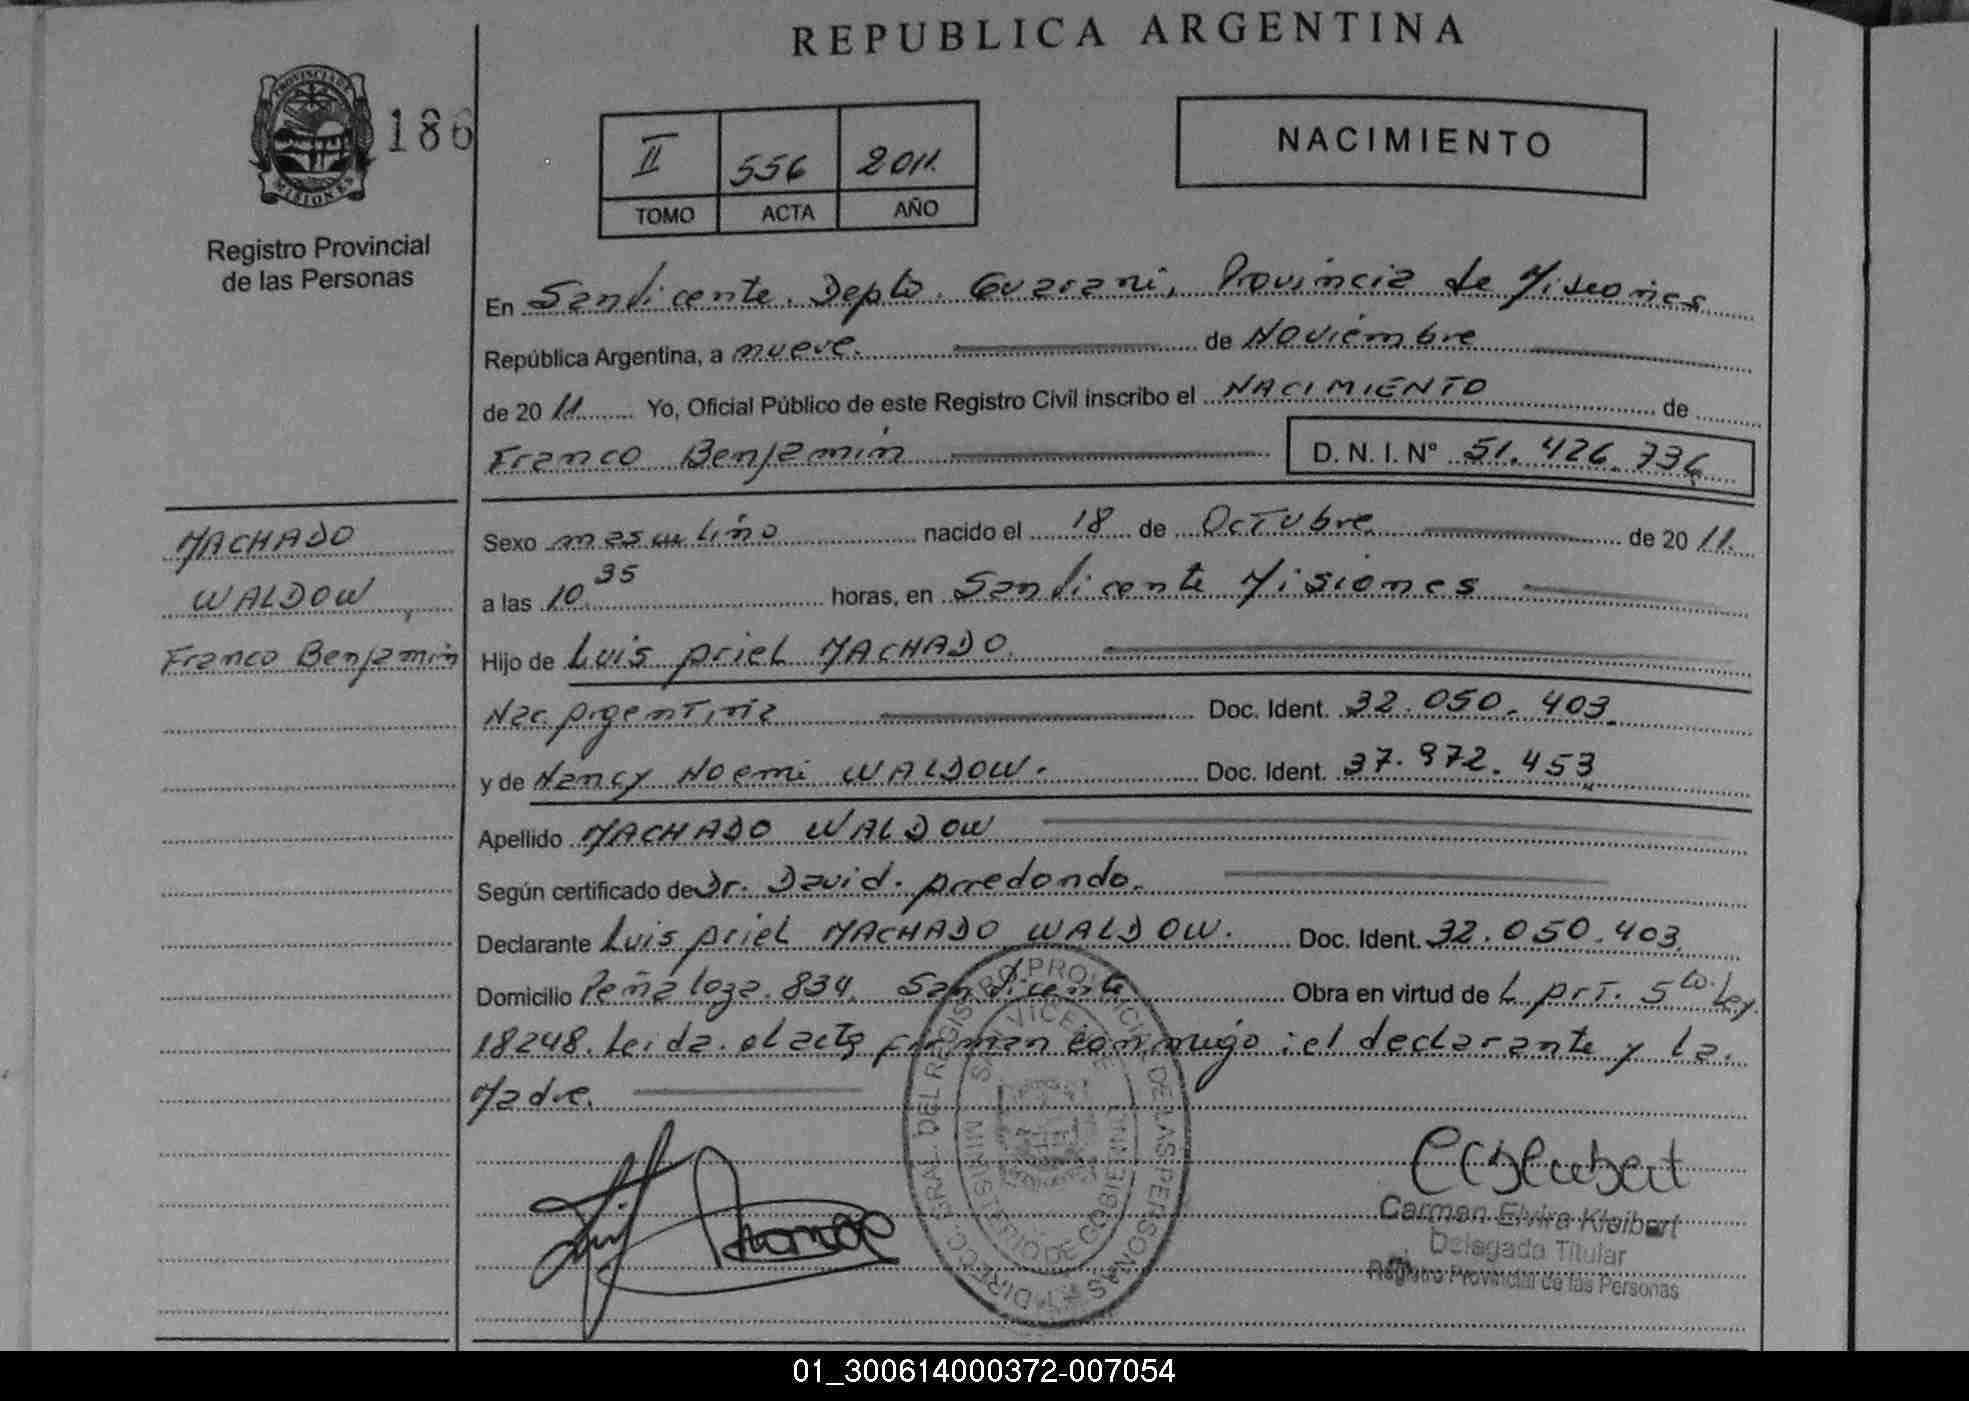 REPUBLICA ARGENTINA
PROVINCIA DE MISIONES
186
Registro Provincial
de las Personas
II 556 2011.
TOMO ACTA AÑO
NACIMIENTO
En San Vicente. Depto. Guarani, Provincia de Misiones
República Argentina, a nueve. de Noviembre
de 20 11 Yo, Oficial Público de este Registro Civil inscribo el NACIMIENTO de
Franco Benjamin D. N. I. N° 51.426.736
MACHADO
WALDOW
Franco Benjamin
Sexo masculino nacido el 18 de Octubre de 20 11.
a las 10 35 horas, en San Vicente Misiones
Hijo de Luis Ariel MACHADO.
Nac Argentina Doc. Ident. 32.050.403.
y de Nancy Noemi WALDOW. Doc. Ident. 37.972.453
Apellido MACHADO WALDOW
Según certificado de Dr. David. Arredondo.
Declarante Luis Ariel MACHADO WALDOW. Doc. Ident. 32.050.403.
Domicilio Peñaloza 834. San Vicente Obra en virtud de L Art. 5to. Ley
18248. Leida el acta firman conmigo: el declarante y la
Madre.
DIRECC. GRAL. DEL REGISTRO PROVINCIAL DE LAS PERSONAS
SAN VICENTE
MINISTERIO DE GOBIERNO
Carmen Elvira Kleibert
Delegada Titular
Registro Provincial de las Personas
01_300614000372-007054